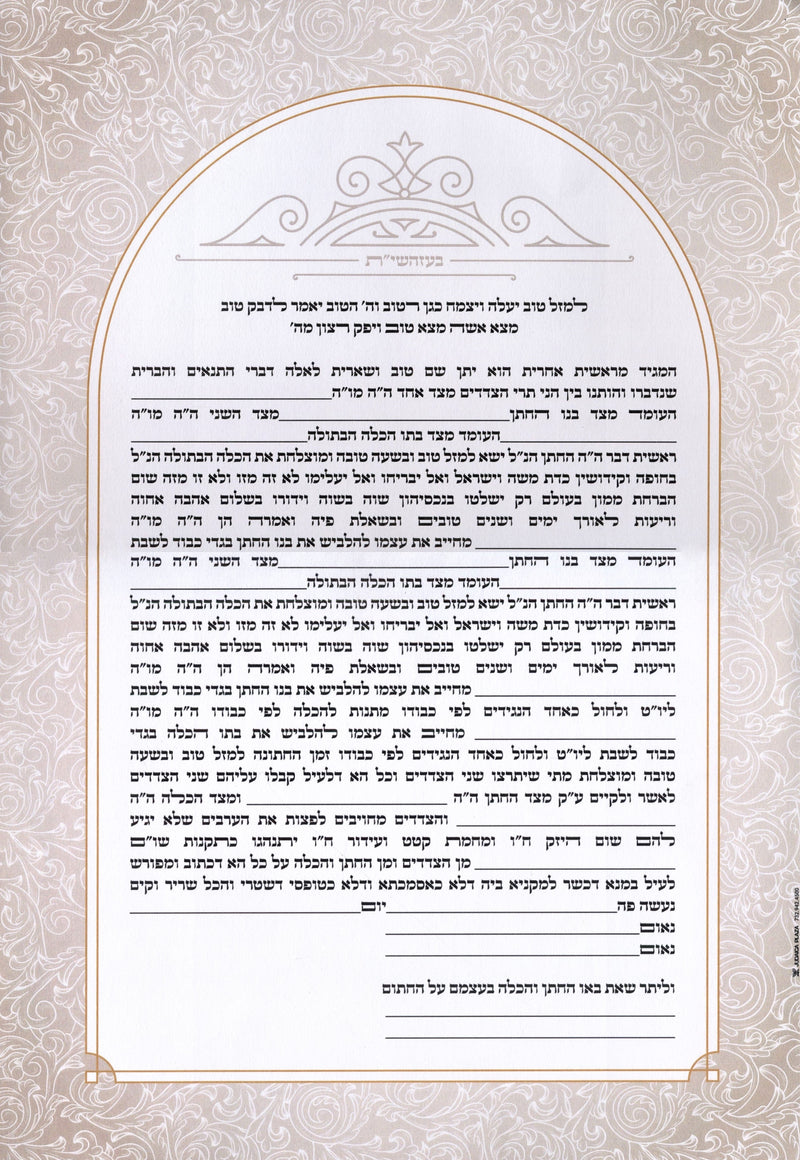 בעזהשי״ת
למזל טוב יעלה ויצמח כגן רטוב וה׳ הטוב יאמר לדבק טוב
מצא אשה מצא טוב ויפק רצון מה׳
המגיד מראשית אחרית הוא יתן שם טוב ושארית לאלה דברי התנאים והברית
שנדברו והותנו בין הני תרי הצדדים מצד אחד ה״ה מו״ה
העומד מצד בנו החתן מצד השני ה״ה מו״ה
העומד מצד בתו הכלה הבתולה
ראשית דבר ה״ה החתן הנ״ל ישא למזל טוב ובשעה טובה ומוצלחת את הכלה הבתולה הנ״ל
בחופה וקידושין כדת משה וישראל ואל יבריחו ואל יעלימו לא זה מזו ולא זו מזה שום
הברחת ממון בעולם רק ישלטו בנכסיהון שוה בשוה וידורו בשלום אהבה אחוה
וריעות לאורך ימים ושנים טובים ובשאלת פיה ואמרה הן ה״ה מו״ה
מחייב את עצמו להלביש את בנו החתן בגדי כבוד לשבת
העומד מצד בנו החתן מצד השני ה״ה מו״ה
העומד מצד בתו הכלה הבתולה
ראשית דבר ה״ה החתן הנ״ל ישא למזל טוב ובשעה טובה ומוצלחת את הכלה הבתולה הנ״ל
בחופה וקידושין כדת משה וישראל ואל יבריחו ואל יעלימו לא זה מזו ולא זו מזה שום
הברחת ממון בעולם רק ישלטו בנכסיהון שוה בשוה וידורו בשלום אהבה אחוה
וריעות לאורך ימים ושנים טובים ובשאלת פיה ואמרה הן ה״ה מו״ה
מחייב את עצמו להלביש את בנו החתן בגדי כבוד לשבת
ליו״ט ולחול כאחד הנגידים לפי כבודו מתנות להכלה לפי כבודו ה״ה מו״ה
מחייב את עצמו להלביש את בתו הכלה בגדי
כבוד לשבת ליו״ט ולחול כאחד הנגידים לפי כבודו זמן החתונה למזל טוב ובשעה
טובה ומוצלחת מתי שיתרצו שני הצדדים וכל הא דלעיל קבלו עליהם שני הצדדים
לאשר ולקיים ע״ק מצד החתן ה״ה ומצד הכלה ה״ה
והצדדים מחויבים לפצות את הערבים שלא יגיע
להם שום היזק ח״ו ומחמת קטט ועידור ח״ו יתנהגו כתקנות שו״ם
מן הצדדים ומן החתן והכלה על כל הא דכתוב ומפורש
לעיל במנא דכשר למקניא ביה דלא כאסמכתא ודלא כטופסי דשטרי והכל שריר וקים
נעשה פה יום
נאום
נאום
וליתר שאת באו החתן והכלה בעצמם על החתום
JUDAICA PLAZA 732.942.4500